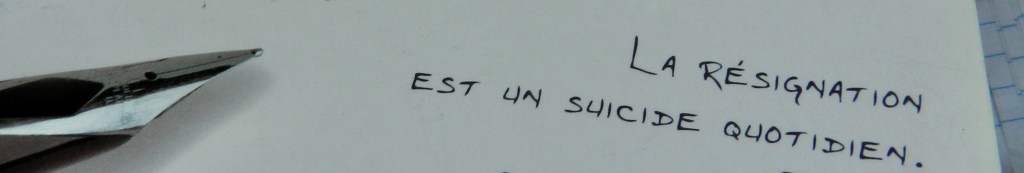 LA RÉSIGNATION
EST UN SUICIDE QUOTIDIEN.